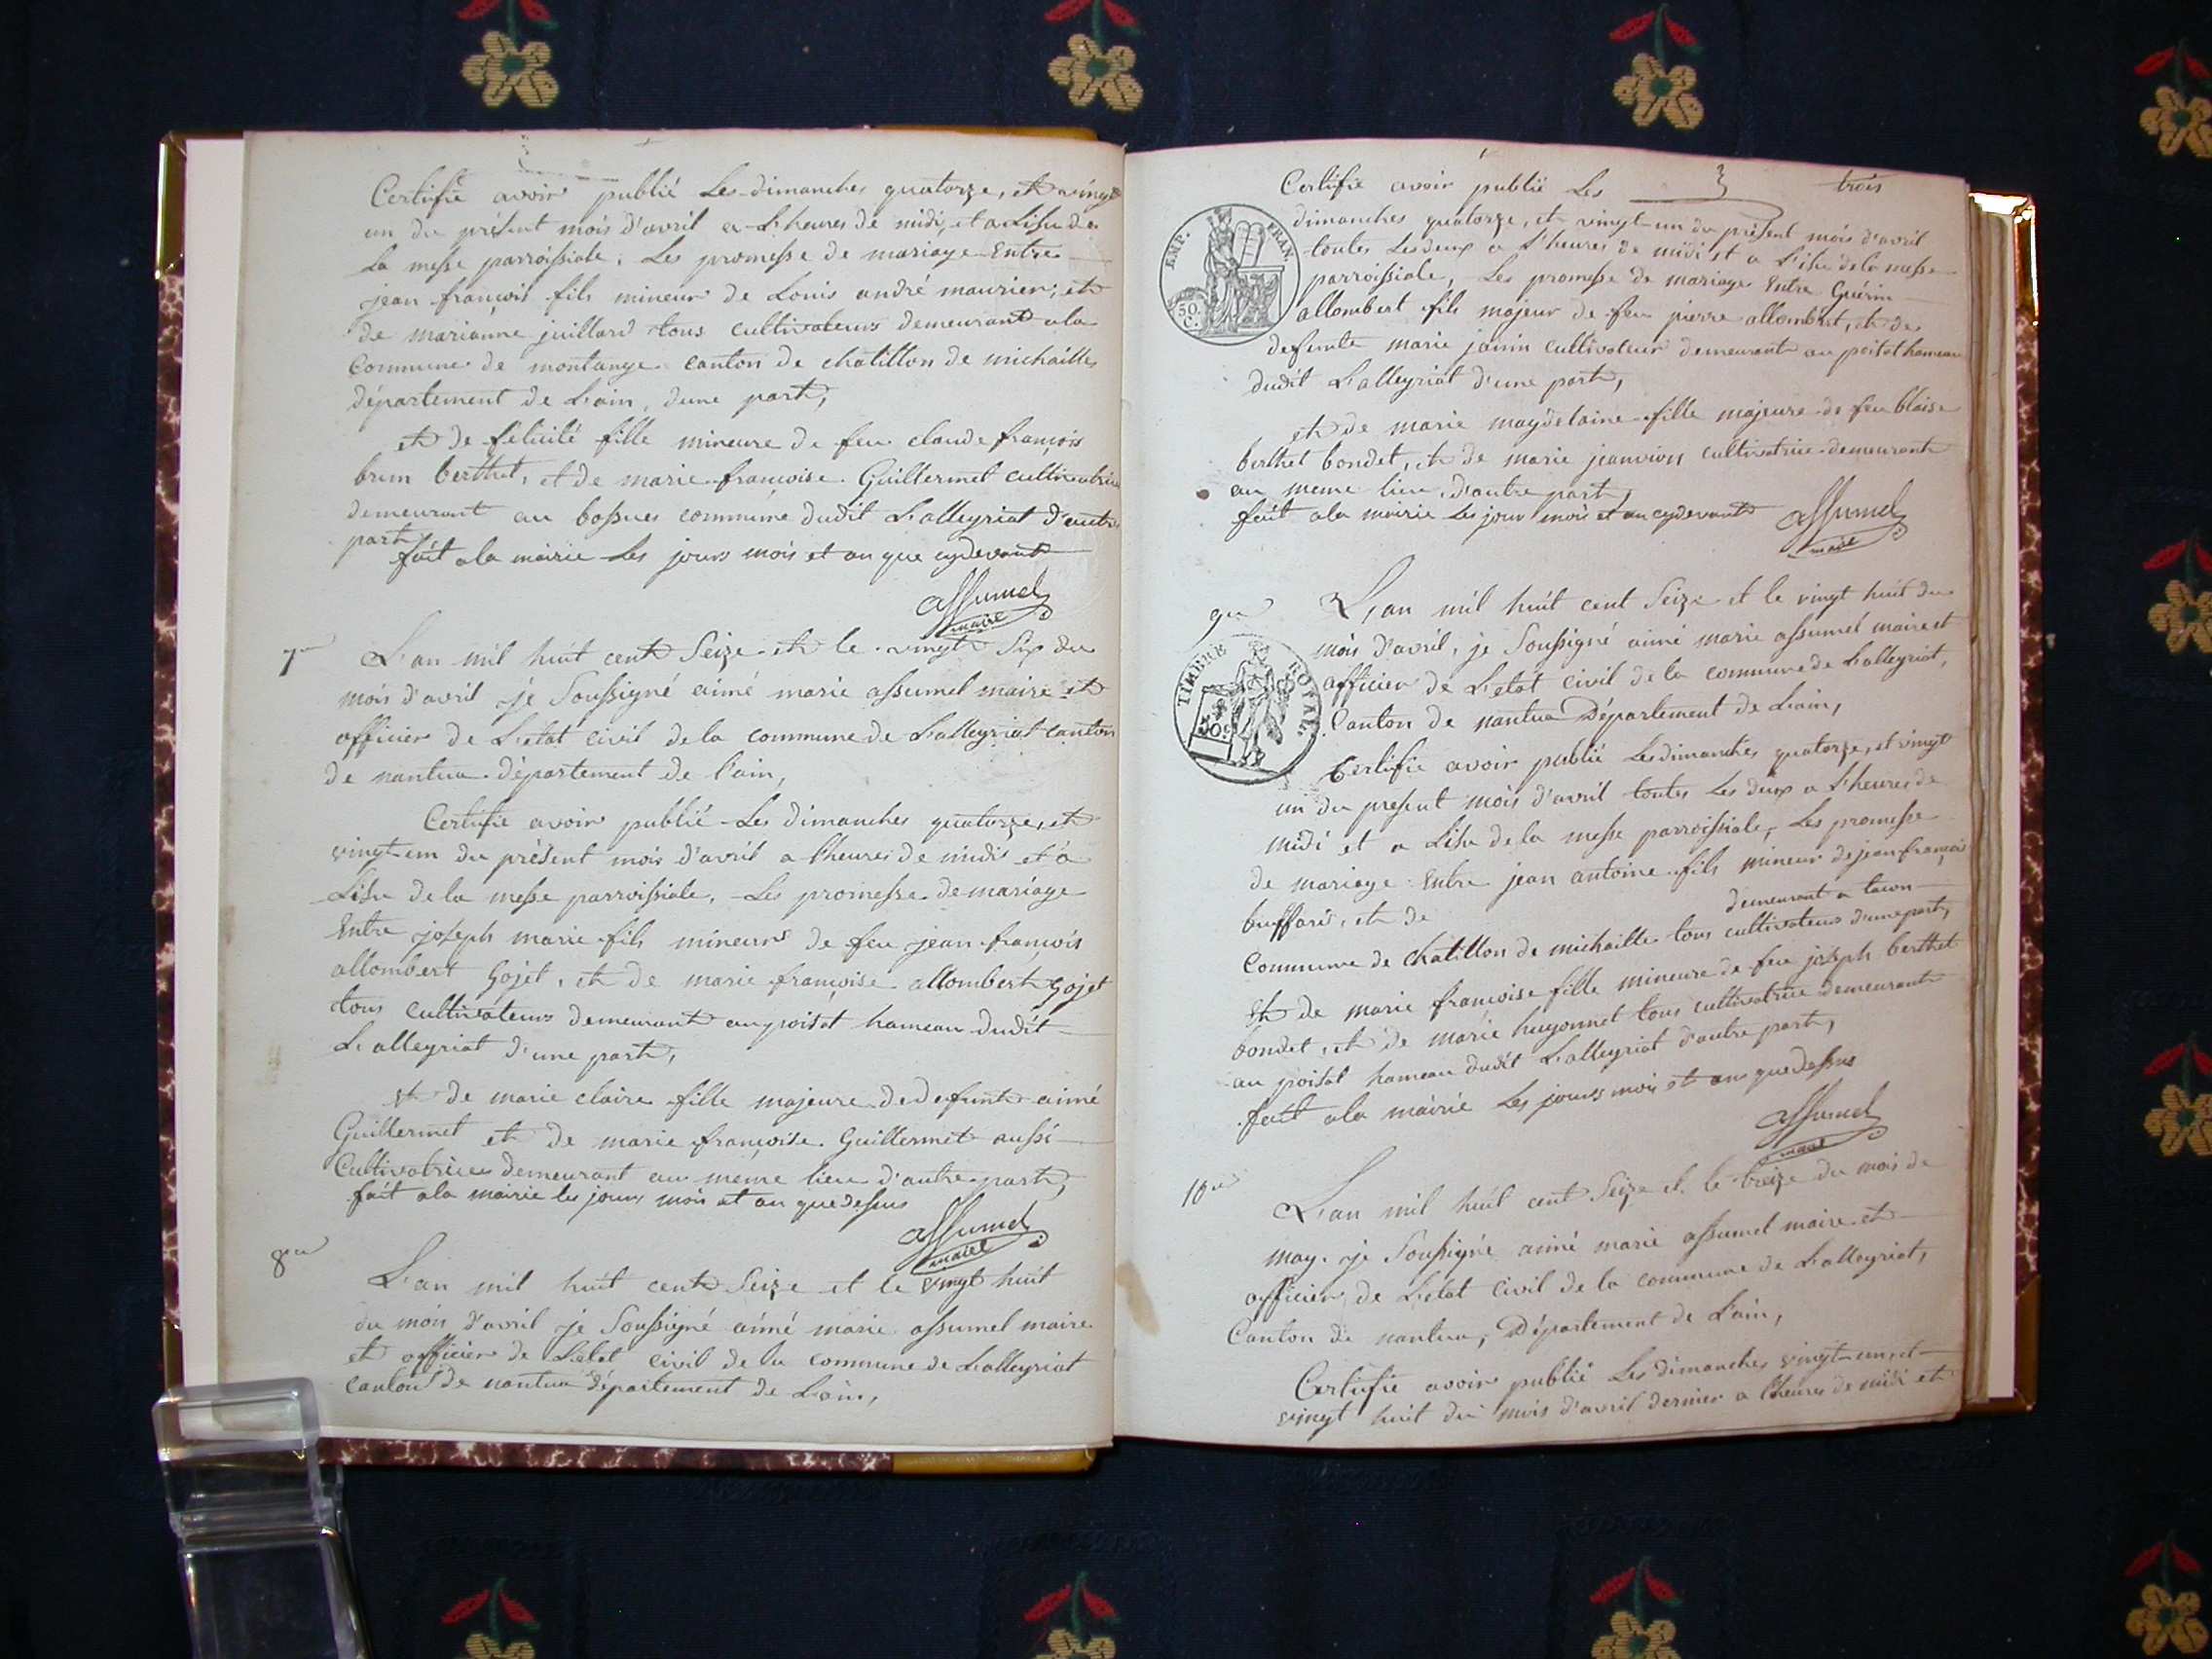 Certifie avoir publié Les dimanches quatorze, et vingt
un du présent mois d'avril a L'heures de midi, et a Lisue de
La messe parroissiale. Les promesse de mariage Entre
jean françois fils mineur de Louis andré maurier, et
de marianne juillard tous cultivateurs demeurant a la
Commune de montange canton de chatillon de michaille
département de L'ain, d'une part,
et de félicité fille mineure de feu claude françois
brun berthet, et de marie françoise Guillermet cultivatrice
demeurant au bossues commune dudit Lalleyriat d'autre
part,
fait a la mairie Les jours mois et an que cydevant
assumel
maire
7me
L'an mil huit cent Seize et le vingt Six du
mois d'avril je Soussigné aimé marie assumel maire et
officier de L'etat civil de la commune de Lalleyriat canton
de nantua département de l'ain,
Certifie avoir publié Les dimanches quatorze, et
vingt un du présent mois d'avril a l'heures de midi et a
Lisue de la messe parroissiale, Les promesse de mariage
Entre joseph marie fils mineur de feu jean françois
allombert Gojet, et de marie françoise allombert Gojet
tous cultivateurs demeurant au poisat hameau dudit
Lalleyriat d'une part,
et de marie claire fille majeure de defunt aimé
Guillermet et de marie françoise Guillermet aussi
Cultivatrices demeurant au meme lieu d'autre part,
fait a la mairie les jours mois et an que dessus
assumel
maire
8me
L'an mil huit cent Seize et le vingt huit
du mois d'avril je Soussigné aimé marie assumel maire
et officier de L'etat civil de la commune de Lalleyriat
canton de nantua département de L'ain,
3 trois
Certifie avoir publié Les
dimanches quatorze, et vingt-un du présent mois d'avril
toutes Les deux a L'heures de midi et a L'isue de la messe
parroissiale, Les promesse de mariage Entre Guérin
allombert fils majeur de feu pierre allombert, et de
defunte marie janin cultivateur demeurant au poisat hameau
dudit Lalleyriat d'une part,
et de marie magdelaine fille majeure de feu blaise
berthet bondet, et de marie jeanvion cultivatrice demeurant
au meme lieu, d'autre part,
fait a la mairie Les jour mois et an cydevant
assumel
maire
EMP. FRAN.
50 C.
9me
L'an mil huit cent Seize et le vingt huit du
mois d'avril, je Soussigné aimé marie assumel maire et
officier de L'etat civil de la commune de Lalleyriat,
Canton de nantua Département de L'ain,
TIMBRE ROYAL
Certifie avoir publié Les dimanches quatorze, et vingt
un du present mois d'avril toutes Les deux a L'heures de
midi et a Lisue de la messe parroissiale, Les promesse
de mariage Entre jean antoine fils mineur de jean françois
buffard, et de demeurant a tacon
Commune de chatillon de michaille tous cultivateurs d'une part,
Et de marie françoise fille mineure de feu joseph berthet
bondet, et de marie hugonnet tous cultivatrice demeurant
au poisat hameau dudit Lalleyriat d'autre part,
fait a la mairie Les jours mois et an que dessus
assumel
maire
10me
L'an mil huit cent Seize et le treize du mois de
may je Soussigné aimé marie assumel maire et
officier de L'etat civil de la commune de Lalleyriat,
Canton de nantua, Département de L'ain,
Certifie avoir publié Les dimanches vingt-un, et
vingt huit du mois d'avril dernier a l'heures de midi et